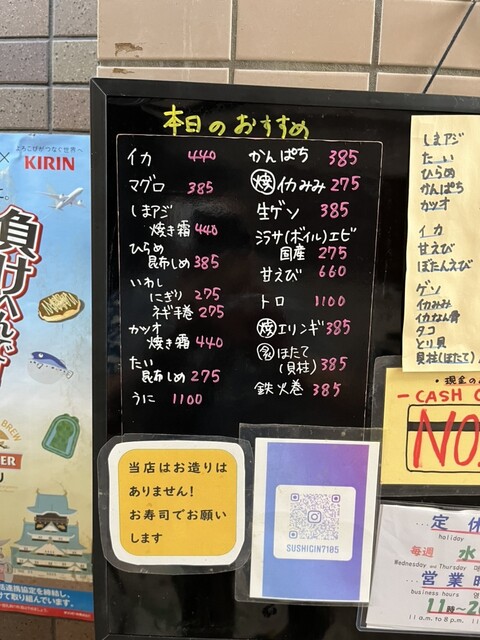 よろこびがつなぐ世界へ
KIRIN
負けへんで
BREW
本日のおすすめ
イカ 440
マグロ 385
しまアジ
焼き霜 440
ひらめ
昆布しめ 385
いわし
にぎり 275
ネギ手巻 275
カツオ
焼き霜 440
たい
昆布しめ 275
うに 1100
かんぱち 385
焼 イカみみ 275
生ゲソ 385
シラサ(ボイル)エビ
国産 275
甘えび 660
トロ 1100
焼 エリンギ 385
名 ほたて
(貝柱) 385
鉄火巻 385
しまアジ
たい
ひらめ
かんぱち
カツオ
イカ
甘えび
ぼたんえび
ゲソ
イカみみ
イカなん骨
タコ
とり貝
貝柱(ほたて)
・現金の
CASH O
NO
当店はお造りは
ありません!
お寿司でお願い
します
SUSHIGIN7185
定休
holiday
毎週 水
Wednesday and Thursday
営業時
business hours
11時〜2
11a.m. to 8p.m.
協定を締結し、
取り組んでいます。